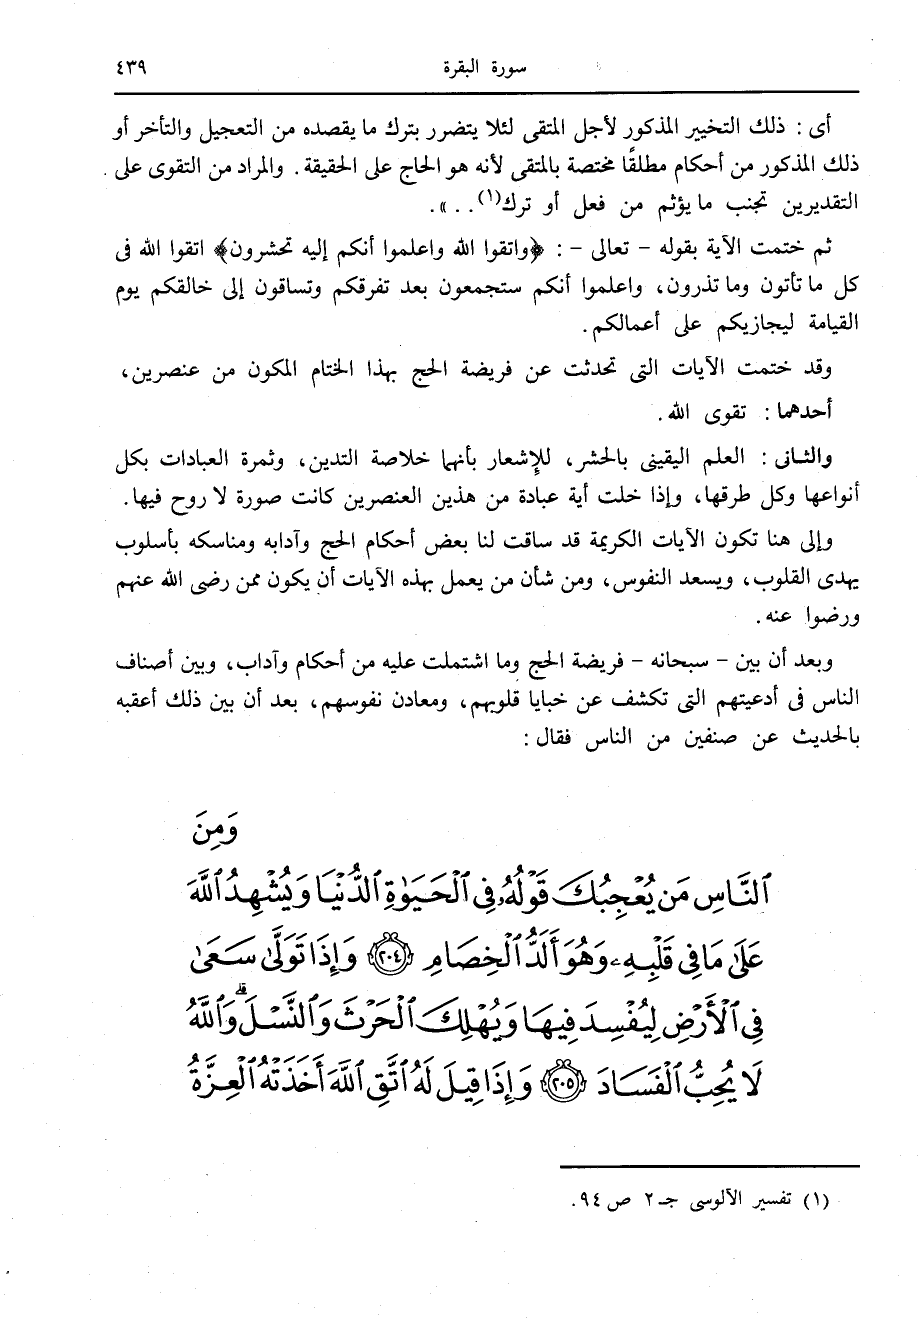 سورة البقرة ٤٣٩
أى : ذلك التخيير المذكور لأجل المتقى لئلا يتضرر بترك ما يقصده من التعجيل والتأخر أو
ذلك المذكور من أحكام مطلقًا مختصة بالمتقى لأنه هو الحاج على الحقيقة. والمراد من التقوى على
التقديرين تجنب ما يؤثم من فعل أو ترك(١). . ».
ثم ختمت الآية بقوله - تعالى - : ﴿واتقوا الله واعلموا أنكم إليه تحشرون﴾ اتقوا الله فى
كل ما تأتون وما تذرون، واعلموا أنكم ستجمعون بعد تفرقكم وتساقون إلى خالقكم يوم
القيامة ليجازيكم على أعمالكم.
وقد ختمت الآيات التى تحدثت عن فريضة الحج بهذا الختام المكون من عنصرين،
أحدهما : تقوى الله.
والثانى : العلم اليقينى بالحشر، للإشعار بأنهما خلاصة التدين، وثمرة العبادات بكل
أنواعها وكل طرقها، وإذا خلت أية عبادة من هذين العنصرين كانت صورة لا روح فيها.
وإلى هنا تكون الآيات الكريمة قد ساقت لنا بعض أحكام الحج وآدابه ومناسكه بأسلوب
يهدى القلوب، ويسعد النفوس، ومن شأن من يعمل بهذه الآيات أن يكون ممن رضى الله عنهم
ورضوا عنه.
وبعد أن بين - سبحانه - فريضة الحج وما اشتملت عليه من أحكام وآداب، وبين أصناف
الناس فى أدعيتهم التى تكشف عن خبايا قلوبهم، ومعادن نفوسهم، بعد أن بين ذلك أعقبه
بالحديث عن صنفين من الناس فقال :
وَمِنَ
ٱلنَّاسِ مَن يُعْجِبُكَ قَوْلُهُۥ فِى ٱلْحَيَوٰةِ ٱلدُّنْيَا وَيُشْهِدُ ٱللَّهَ
عَلَىٰ مَا فِى قَلْبِهِۦ وَهُوَ أَلَدُّ ٱلْخِصَامِ ٢٠٤ وَإِذَا تَوَلَّىٰ سَعَىٰ
فِى ٱلْأَرْضِ لِيُفْسِدَ فِيهَا وَيُهْلِكَ ٱلْحَرْثَ وَٱلنَّسْلَ ۗ وَٱللَّهُ
لَا يُحِبُّ ٱلْفَسَادَ ٢٠٥ وَإِذَا قِيلَ لَهُ ٱتَّقِ ٱللَّهَ أَخَذَتْهُ ٱلْعِزَّةُ
(١) تفسير الآلوسى جـ ٢ ص ٩٤.